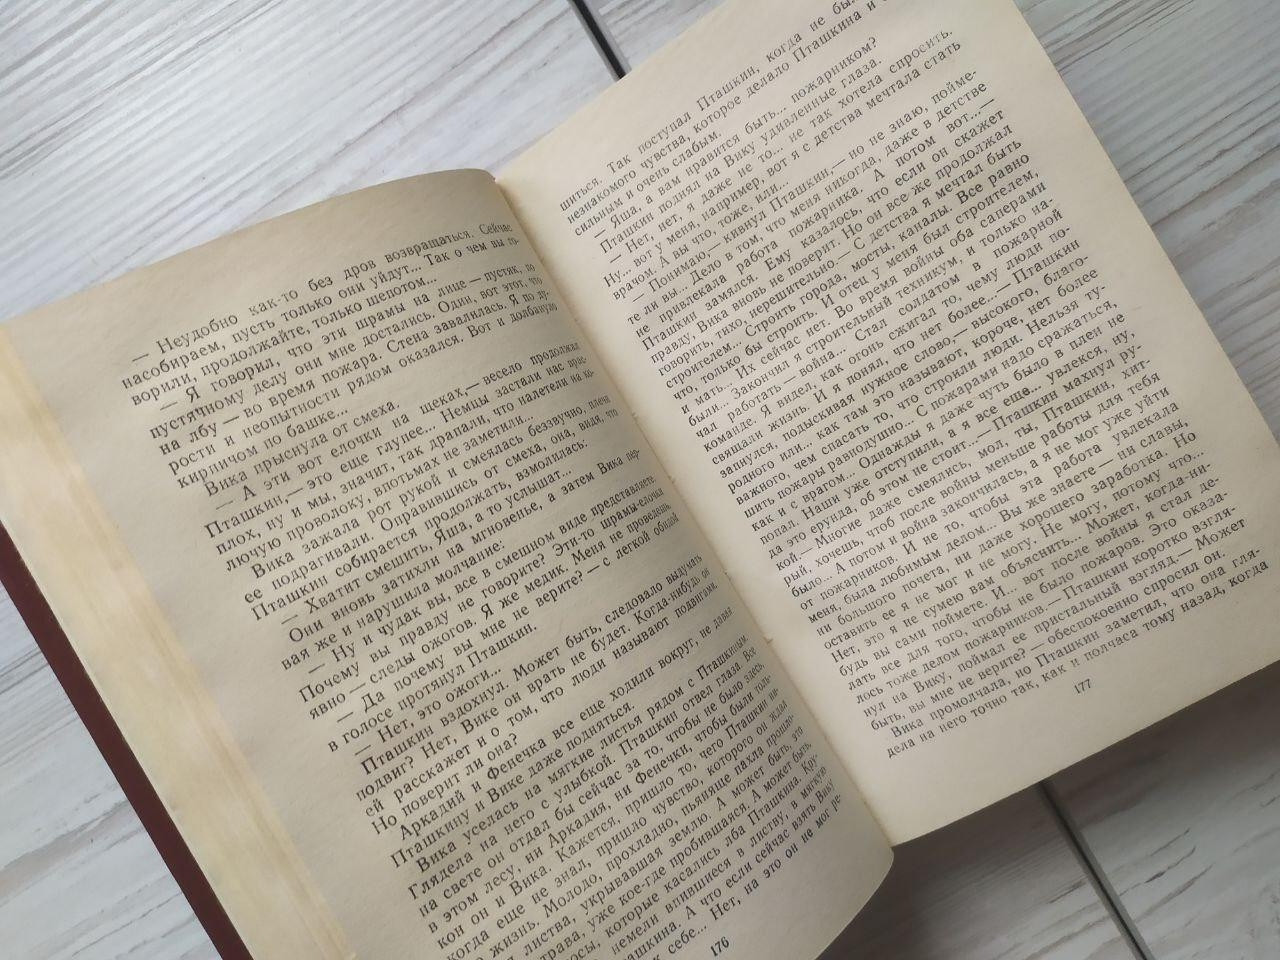 — Неудобно как-то без дров возвращаться. Сейчас
насобираем, пусть только они уйдут... Так о чем вы го-
ворили, продолжайте, только шепотом...
— Я говорил, что эти шрамы на лице — пустяк, по
пустячному делу они мне достались. Один, вот этот, что
на лбу — во время пожара. Стена завалилась. Я по ду-
рости и неопытности рядом оказался. Вот и долбануло
кирпичом по башке...
Вика прыснула от смеха.
— А эти вот елочки на щеках,— весело продолжал
Пташкин,— это еще глупее... Немцы застали нас врас-
плох, ну и мы, значит, так драпали, что налетели на ко-
лючую проволоку, впотьмах не заметили...
Вика зажала рот рукой и смеялась беззвучно, плечи
ее подрагивали. Оправившись от смеха, она, видя, что
Пташкин собирается продолжать, взмолилась:
— Хватит смешить, Яша, а то услышат...
Они вновь затихли на мгновенье, а затем Вика пер-
вая же и нарушила молчание:
— Ну и чудак вы, все в смешном виде представляете.
Почему вы правду не говорите? Эти-то шрамы-елочки
явно — следы ожогов. Я же медик. Меня не проведешь.
— Да почему вы мне не верите? — с легкой обидой
в голосе протянул Пташкин.
— Нет, это ожоги...
Пташкин вздохнул. Может быть, следовало выдумать
подвиг? Нет, Вике он врать не будет. Когда-нибудь он
ей расскажет и о том, что люди называют подвигами.
Но поверит ли она?
Аркадий и Фенечка все еще ходили вокруг, не давая
Пташкину и Вике даже подняться.
Вика уселась на мягкие листья рядом с Пташкиным.
Глядела на него с улыбкой. Пташкин отвел глаза. Все
на свете он отдал бы сейчас за то, чтобы не было здесь,
в этом лесу, ни Аркадия, ни Фенечки, чтобы были толь-
ко он и Вика. Кажется, пришло то, чего Пташкин ни-
когда еще не знал, пришло чувство, которого он ждал
жизнь. Молодо, прохладно, пьяняще пахла прошло-
листва, укрывавшая землю. А может быть, это
трава, уже кое-где пробившаяся, А может быть,
которые касались лба Пташкина. Кру-
немели впившиеся в листву, в мягкую
Пташкина. А что если сейчас взять Вику
к себе... Нет, на это он не мог ре-
176
шиться. Так поступал Пташкин, когда не был
незнакомого чувства, которое делало Пташкина и
сильным и очень слабым.
— Яша, а вам нравится быть... пожарником?
Пташкин поднял на Вику удивленные глаза.
— Нет, нет, я даже не то... не так хотела спросить.
Ну... вот у меня, например, вот я с детства мечтала стать
врачом. А вы что, тоже, или...
— Понимаю,— кивнул Пташкин,— но не знаю, пойме-
те ли вы... Дело в том, что меня никогда, даже в детстве
не привлекала работа пожарника. А потом вот... —
Пташкин замялся. Ему казалось, что если он скажет
правду, Вика вновь не поверит. Но он все же продолжал
говорить, тихо, нерешительно.— С детства я мечтал быть
строителем... Строить города, мосты, каналы. Все равно
что, только бы строить. И отец у меня был строителем,
и мать... Их сейчас нет. Во время войны оба саперами
были... Закончил я строительный техникум, и только на-
чал работать — война... Стал солдатом в пожарной
команде. Я видел, как огонь сжигал то, чему люди по-
свящали жизнь. И я понял, что нет более...— Пташкин
запнулся, подыскивая нужное слово,— высокого, благо-
родного или... как там это называют, короче, нет более
важного, чем спасать то, что строили люди. Нельзя ту-
шить пожары равнодушно... С пожарами надо сражаться,
как и с врагом... Однажды я даже чуть было в плен не
попал. Наши уже отступили, а я все еще... увлекся, ну,
да это ерунда, об этом не стоит...— Пташкин махнул ру-
кой.— Многие даже смеялись, мол, ты, Пташкин, хит-
рый, хочешь, чтоб после войны меньше работы для тебя
было... А потом и война закончилась, а я не мог уже уйти
от пожарников. И не то, чтобы эта работа увлекала
меня, была любимым делом... Вы же знаете — ни славы,
ни большого почета, ни даже хорошего заработка. Но
оставить ее я не мог и не могу. Не могу, потому что...
Нет, это я не сумею вам объяснить... Может, когда-ни-
будь вы сами поймете. И... вот после войны я стал де-
лать все для того, чтобы не было пожаров. Это оказа-
лось тоже делом пожарников.— Пташкин коротко взгля-
нул на Вику, поймал ее пристальный взгляд.— Может
быть, вы мне не верите? — обеспокоенно спросил он.
Вика промолчала, но Пташкин заметил, что она гля-
дела на него точно так, как и полчаса тому назад, когда
177